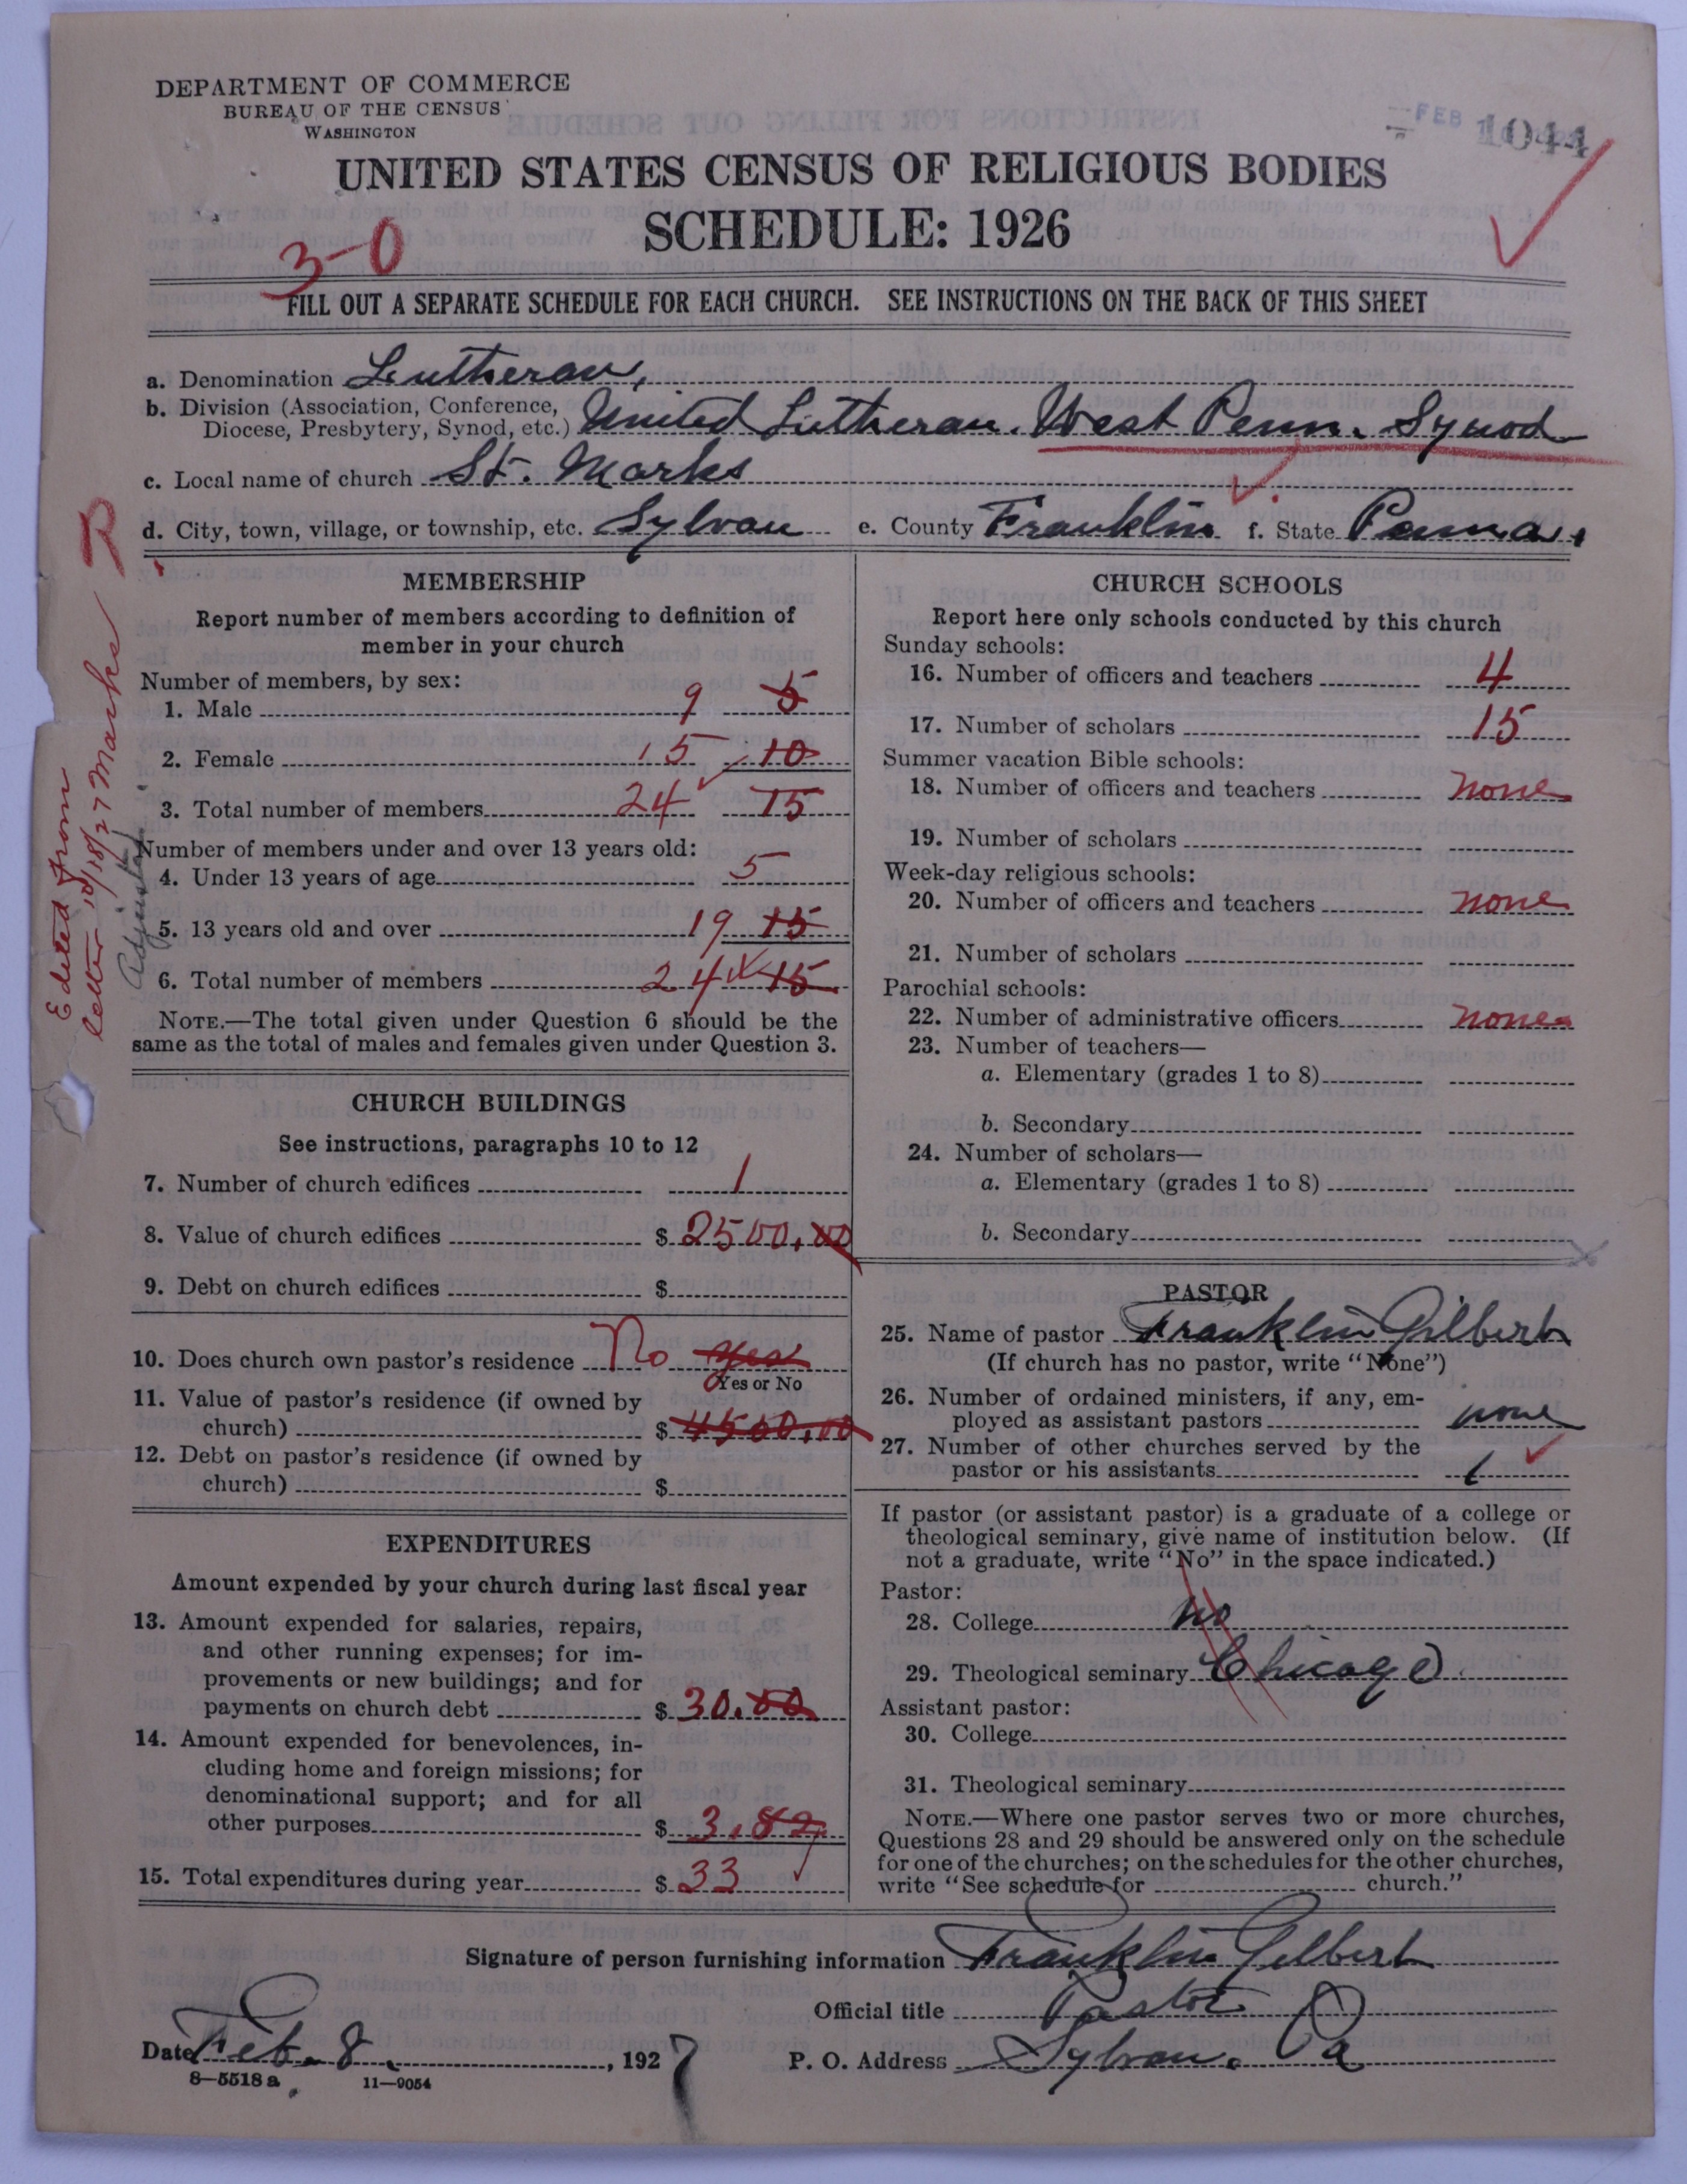 DEPARTMENT OF COMMERCE
BUREAU OF THE CENSUS
WASHINGTON
FEB 1044
UNITED STATES CENSUS OF RELIGIOUS BODIES
SCHEDULE: 1926
3-0
FILL OUT A SEPARATE SCHEDULE FOR EACH CHURCH. SEE INSTRUCTIONS ON THE BACK OF THIS SHEET
a. Denomination Lutheran,
b. Division (Association, Conference, Diocese, Presbytery, Synod, etc.) United Lutheran. West Penn. Synod
c. Local name of church St. Marks
d. City, town, village, or township, etc. Sylvan e. County Franklin f. State Penna.
Edited from
letter, 10/18/27 Marks
Adjusted
MEMBERSHIP
Report number of members according to definition of
member in your church
Number of members, by sex:
1. Male 9 5
2. Female 15 10
3. Total number of members 24 15
Number of members under and over 13 years old:
4. Under 13 years of age 5
5. 13 years old and over 19 15
6. Total number of members 24 15
NOTE.—The total given under Question 6 should be the
same as the total of males and females given under Question 3.
CHURCH BUILDINGS
See instructions, paragraphs 10 to 12
7. Number of church edifices 1
8. Value of church edifices $ 2500.00
9. Debt on church edifices $
10. Does church own pastor's residence No Yes
Yes or No
11. Value of pastor's residence (if owned by
church) $ 4500.00
12. Debt on pastor's residence (if owned by
church) $
EXPENDITURES
Amount expended by your church during last fiscal year
13. Amount expended for salaries, repairs,
and other running expenses; for im-
provements or new buildings; and for
payments on church debt $ 30.00
14. Amount expended for benevolences, in-
cluding home and foreign missions; for
denominational support; and for all
other purposes $ 3.82
15. Total expenditures during year $ 33
CHURCH SCHOOLS
Report here only schools conducted by this church
Sunday schools:
16. Number of officers and teachers 4
17. Number of scholars 15
Summer vacation Bible schools:
18. Number of officers and teachers none
19. Number of scholars
Week-day religious schools:
20. Number of officers and teachers none
21. Number of scholars
Parochial schools:
22. Number of administrative officers none
23. Number of teachers—
a. Elementary (grades 1 to 8)
b. Secondary
24. Number of scholars—
a. Elementary (grades 1 to 8)
b. Secondary
PASTOR
25. Name of pastor Franklin Gilbert
(If church has no pastor, write "None")
26. Number of ordained ministers, if any, em-
ployed as assistant pastors none
27. Number of other churches served by the
pastor or his assistants 6
If pastor (or assistant pastor) is a graduate of a college or
theological seminary, give name of institution below. (If
not a graduate, write "No" in the space indicated.)
Pastor:
28. College No
29. Theological seminary Chicago
Assistant pastor:
30. College
31. Theological seminary
NOTE.—Where one pastor serves two or more churches,
Questions 28 and 29 should be answered only on the schedule
for one of the churches; on the schedules for the other churches,
write "See schedule for church."
Signature of person furnishing information Franklin Gilbert
Official title Pastor
Date Feb. 8, 1927 P. O. Address Sylvan. Pa
8—5518 a 11—9054